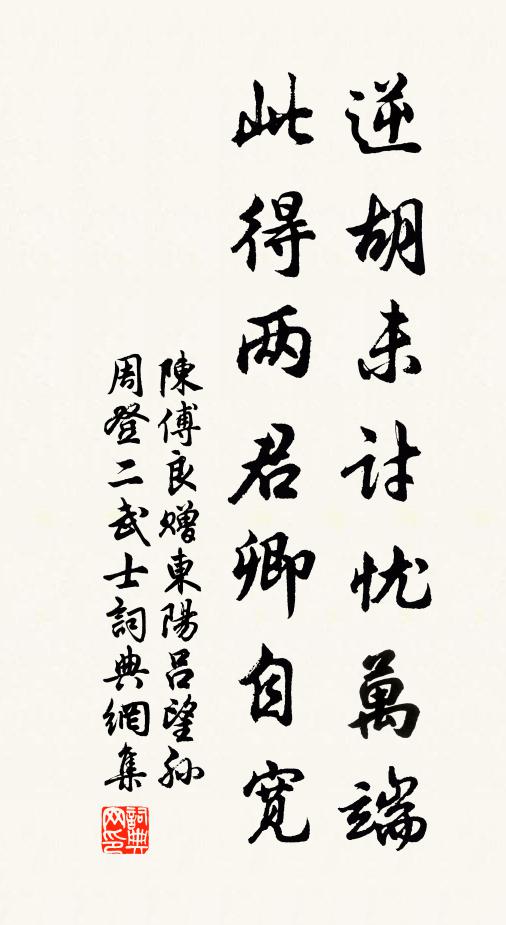 逆胡未讨忧萬端
此得两君卿自宽
陳傅良赠東陽吕望孙
周登二武士詞典網集
詞典网印